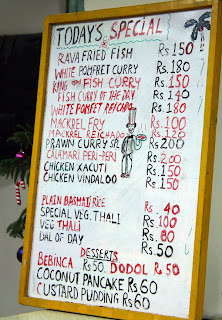 TODAY'S SPECIAL
RAVA FRIED FISH Rs.150
WHITE POMFRET CURRY Rs.180
KING FISH CURRY Rs.150
FISH CURRY OF THE DAY Rs.140
WHITE POMFRET REICHADO Rs.180
MACKREL FRY Rs.100
MACKREL REICHADO Rs.120
PRAWN CURRY Rs.200
CALAMARI PERI-PERI Rs.200
CHICKEN XACUTI Rs.150
CHICKEN VINDALOO Rs.150
PLAIN BASMATI RICE Rs.40
SPECIAL VEG. THALI Rs.100
VEG THALI Rs.80
DAL OF DAY Rs.50
DESSERTS
BEBINCA Rs 50. DODOL Rs 50
COCONUT PANCAKE Rs 60
CUSTARD PUDDING Rs 60